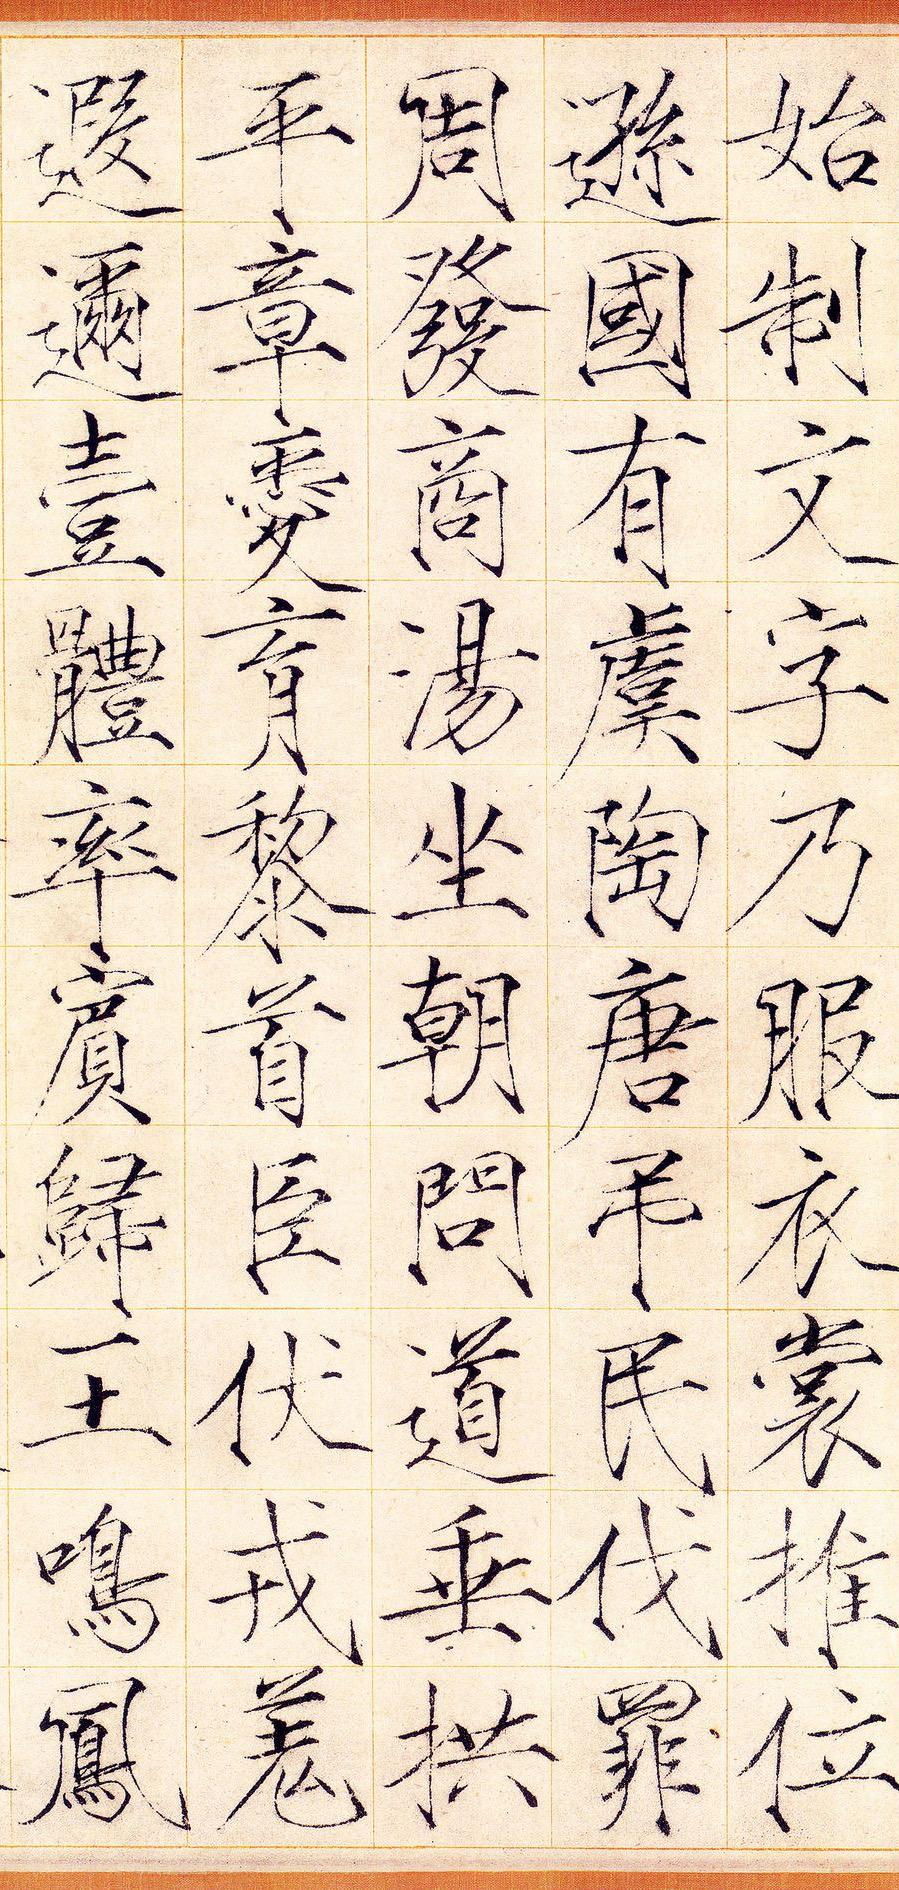 始制文字乃服衣裳推位
遜國有虞陶唐弔民伐罪
周發商湯坐朝問道垂拱
平章愛育黎首臣伏戎羌
遐邇壹體率賓歸王鳴鳳